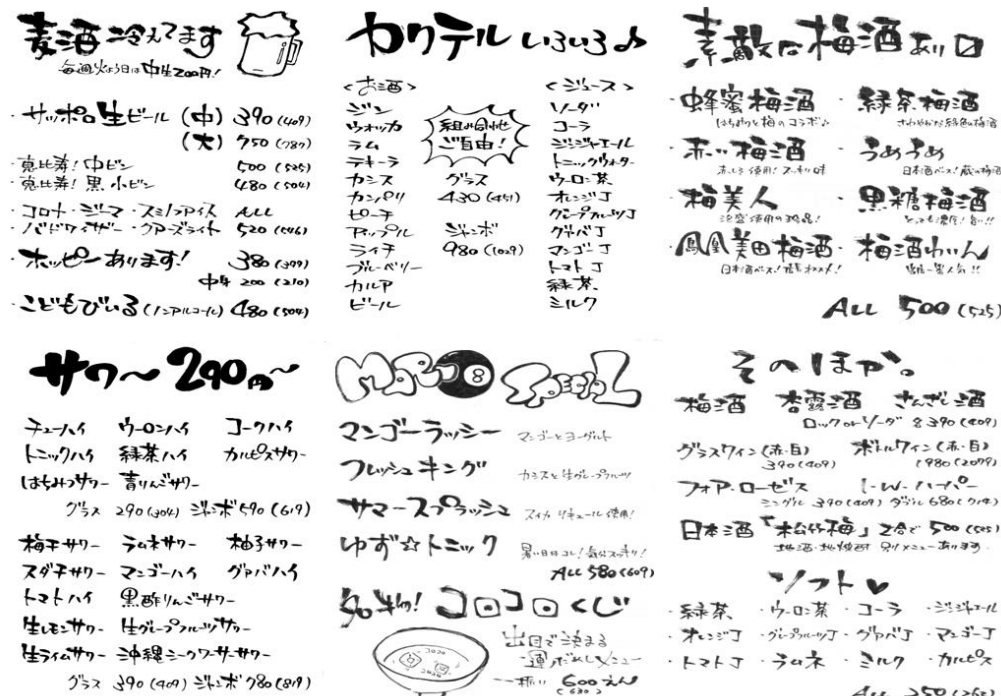 麦酒冷えてます
毎週火よう日は中生200円!
・サッポロ生ビール (中) 390 (409)
(大) 750 (787)
・恵比寿! 中ビン 500 (525)
・恵比寿! 黒 小ビン 480 (504)
・コロナ・ジーマ・スミノフアイス ALL
・バドワイザー・クアーズライト 520 (546)
・ホッピーあります! 380 (399)
中身 200 (210)
・こどもびいる (ノンアルコール) 480 (504)
カクテルいろいろ♪
<お酒>
ジン
ウォッカ
ラム
テキーラ
カシス
カンパリ
ピーチ
アップル
ライチ
ブルーベリー
カルア
ビール
組み合わせ
ご自由!
グラス
430 (451)
ジャンボ
980 (1029)
<ジュース>
ソーダ
コーラ
ジンジャエール
トニックウォーター
ウーロン茶
オレンジJ
グレープフルーツJ
グァバJ
マンゴーJ
トマトJ
緑茶
ミルク
素敵な梅酒あり〼
・蜂蜜梅酒 ・緑茶梅酒
はちみつと梅のコラボ♪ さわやかな緑色の梅酒
・赤い梅酒 ・うめうめ
赤しそ使用! スッキリ味 日本酒ベース! 蔵の梅酒
・梅美人 ・黒糖梅酒
泡盛使用の逸品! とっても濃厚! 旨い!!
・鳳凰美田梅酒 ・梅酒わいん
日本酒ベース! 店長オススメ!
ALL 500 (525)
サワー〜290円〜
チューハイ ウーロンハイ コークハイ
トニックハイ 緑茶ハイ カルピスサワー
はちみつサワー 青りんごサワー
グラス 290 (304) ジャンボ 590 (619)
梅干サワー ラムネサワー 柚子サワー
スダチサワー マンゴーハイ グァバハイ
トマトハイ 黒酢りんごサワー
生レモンサワー 生グレープフルーツサワー
生ライムサワー 沖縄シークワーサーサワー
グラス 390 (409) ジャンボ 780 (819)
MARU 8 SPECIAL
マンゴーラッシー マンゴーとヨーグルト
フレッシュキング カシスと生グレープフルーツ
サマースプラッシュ スイカリキュール使用!
ゆず☆トニック 暑い日はコレ! 気分スッキリ!
ALL 580 (609)
名物! コロコロくじ
出目で決まる
運だめしメニュー
一杯 600えん
(630)
そのほか。
梅酒 杏露酒 さんざし酒
ロック or ソーダ 各390 (409)
グラスワイン (赤・白) ボトルワイン (赤・白)
390 (409) 1980 (2079)
フォア・ローゼス I・W・ハーパー
シングル 390 (409) ダブル 680 (714)
日本酒「松竹梅」2合で500 (525)
地酒・地焼酎 別メニューあります。
ソフト♥
・緑茶 ・ウーロン茶 ・コーラ ・ジンジャエール
・オレンジJ ・グレープフルーツJ ・グァバJ ・マンゴーJ
・トマトJ ・ラムネ ・ミルク ・カルピス
ALL 250 (262)